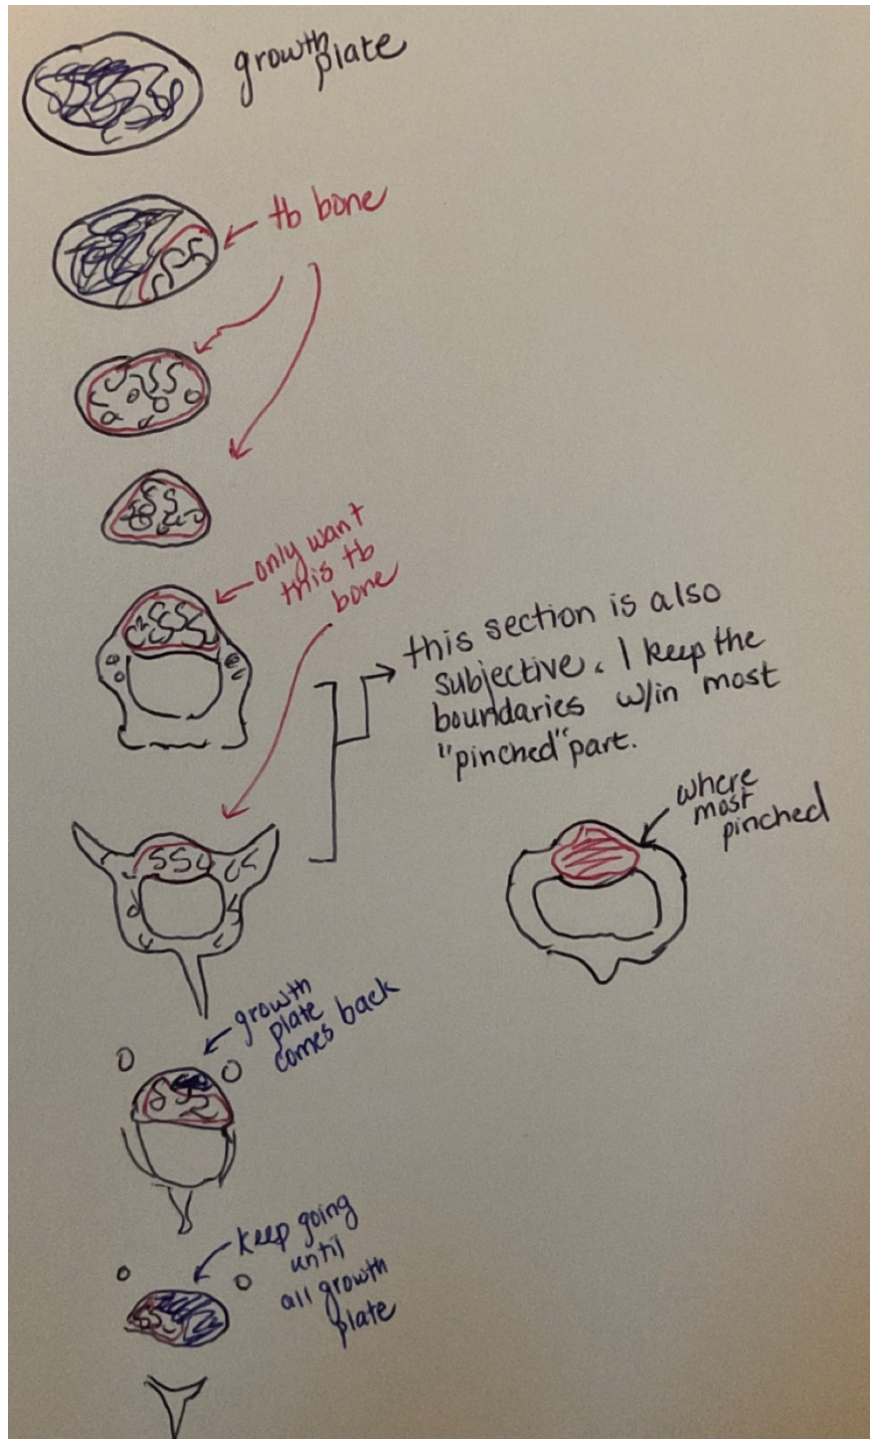 growth
plate
tb bone
only want
this tb
bone
this section is also
subjective. I keep the
boundaries w/in most
"pinched" part.
where
most
pinched
growth
plate
comes back
keep going
until
all growth
plate